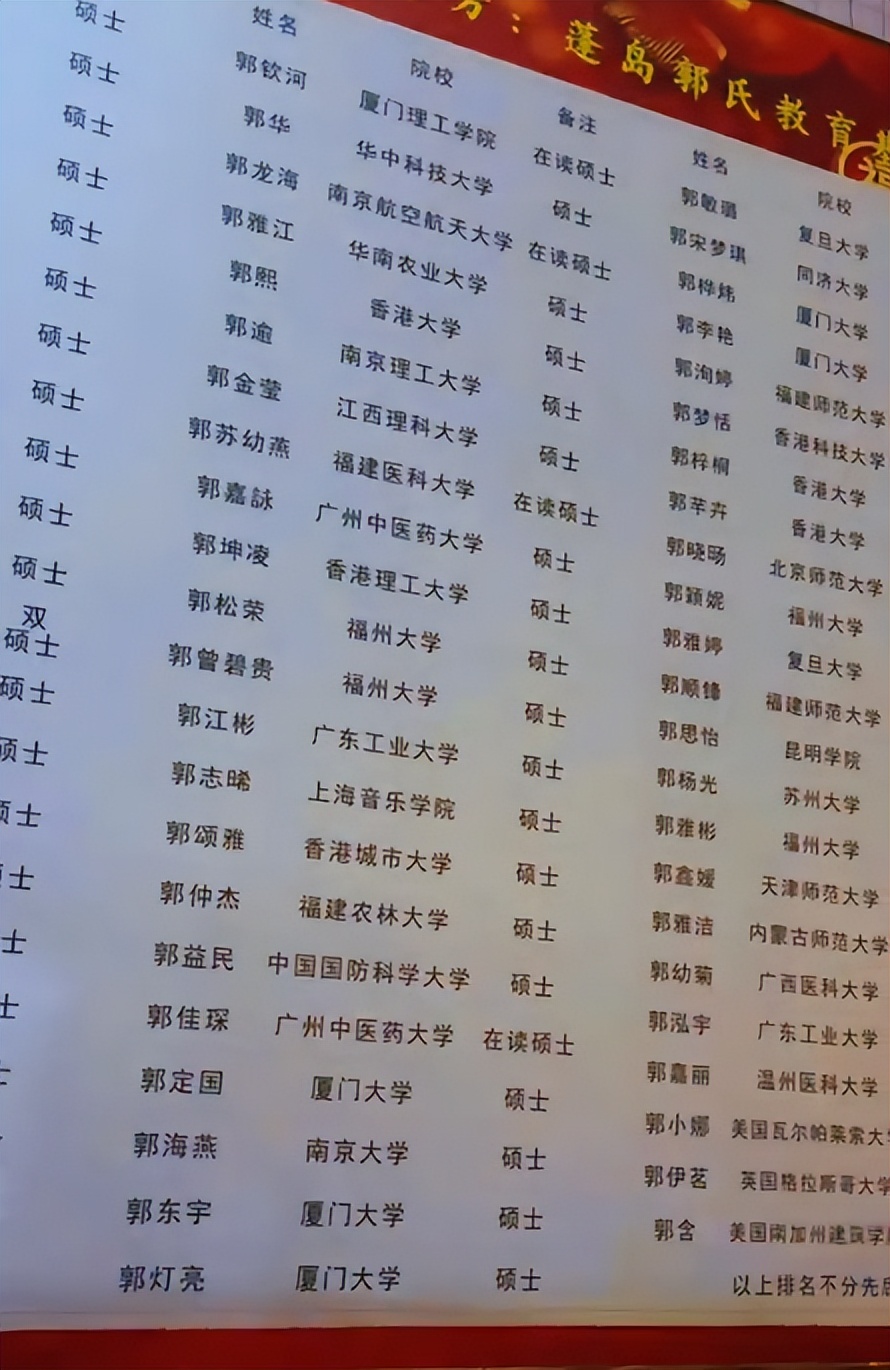 方：蓬岛郭氏教育
姓名 院校 备注 姓名 院校
硕士 郭钦河 厦门理工学院 在读硕士 郭敏璐 复旦大学
硕士 郭华 华中科技大学 硕士 郭宋梦琪 同济大学
硕士 郭龙海 南京航空航天大学 在读硕士 郭桦炜 厦门大学
硕士 郭雅江 华南农业大学 硕士 郭李艳 厦门大学
硕士 郭熙 香港大学 硕士 郭洵婷 福建师范大学
硕士 郭逾 南京理工大学 硕士 郭梦恬 香港科技大学
硕士 郭金莹 江西理科大学 硕士 郭梓桐 香港大学
硕士 郭苏幼燕 福建医科大学 在读硕士 郭芊卉 香港大学
硕士 郭嘉詠 广州中医药大学 硕士 郭晓旸 北京师范大学
硕士 郭坤凌 香港理工大学 硕士 郭颖妮 福州大学
硕士 郭松荣 福州大学 硕士 郭雅婷 复旦大学
双
硕士 郭曾碧贵 福州大学 硕士 郭顺锋 福建师范大学
硕士 郭江彬 广东工业大学 硕士 郭思怡 昆明学院
硕士 郭志晞 上海音乐学院 硕士 郭杨光 苏州大学
硕士 郭颂雅 香港城市大学 硕士 郭雅彬 福州大学
士 郭仲杰 福建农林大学 硕士 郭鑫媛 天津师范大学
士 郭益民 中国国防科学大学 硕士 郭雅洁 内蒙古师范大学
士 郭佳琛 广州中医药大学 在读硕士 郭幼菊 广西医科大学
郭定国 厦门大学 硕士 郭泓宇 广东工业大学
郭海燕 南京大学 硕士 郭嘉丽 温州医科大学
郭东宇 厦门大学 硕士 郭小娜 美国瓦尔帕莱索大
郭灯亮 厦门大学 硕士 郭伊茗 英国格拉斯哥大学
郭含 美国南加州建筑学
以上排名不分先后